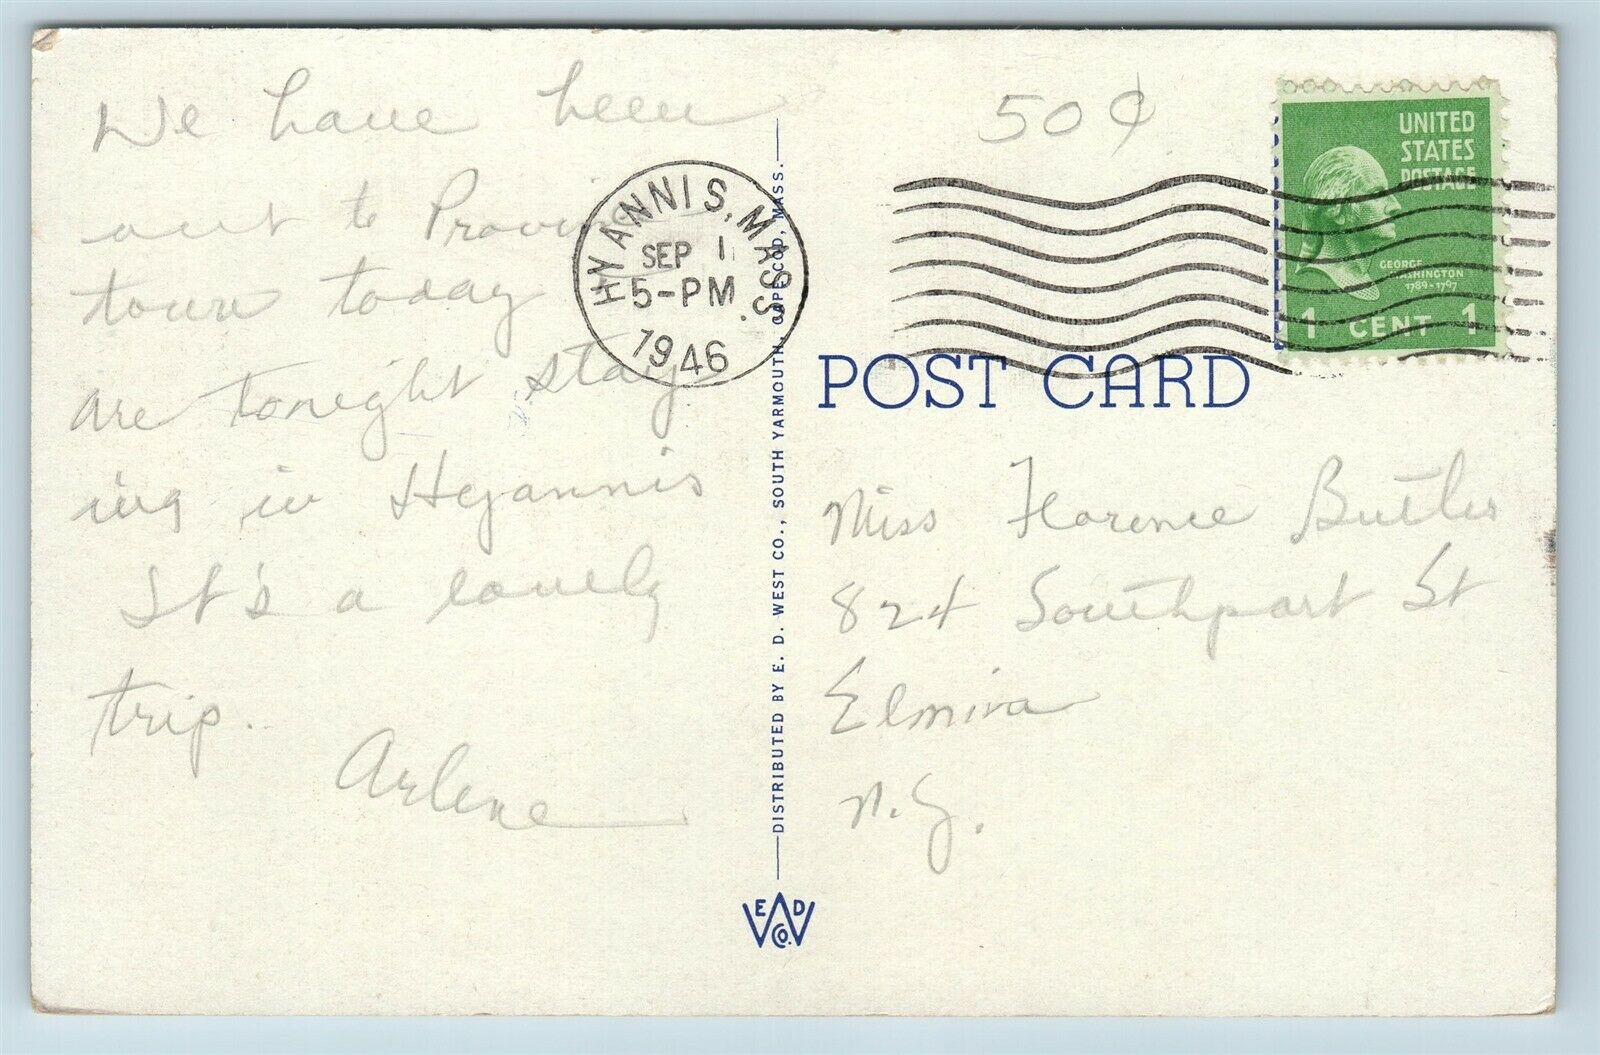 We have been
out to Province
town today
are tonight stay
ing in Hyannis
It's a lovely
trip.
Arlene
HYANNIS, MASS.
SEP 1
5-PM
1946
DISTRIBUTED BY E. D. WEST CO., SOUTH YARMOUTH, CAPE COD, MASS.
E D W Co.
50¢
UNITED
STATES
POSTAGE
GEORGE
WASHINGTON
1789-1797
1 CENT 1
POST CARD
Miss Florence Butler
824 Southport St
Elmira
N.Y.